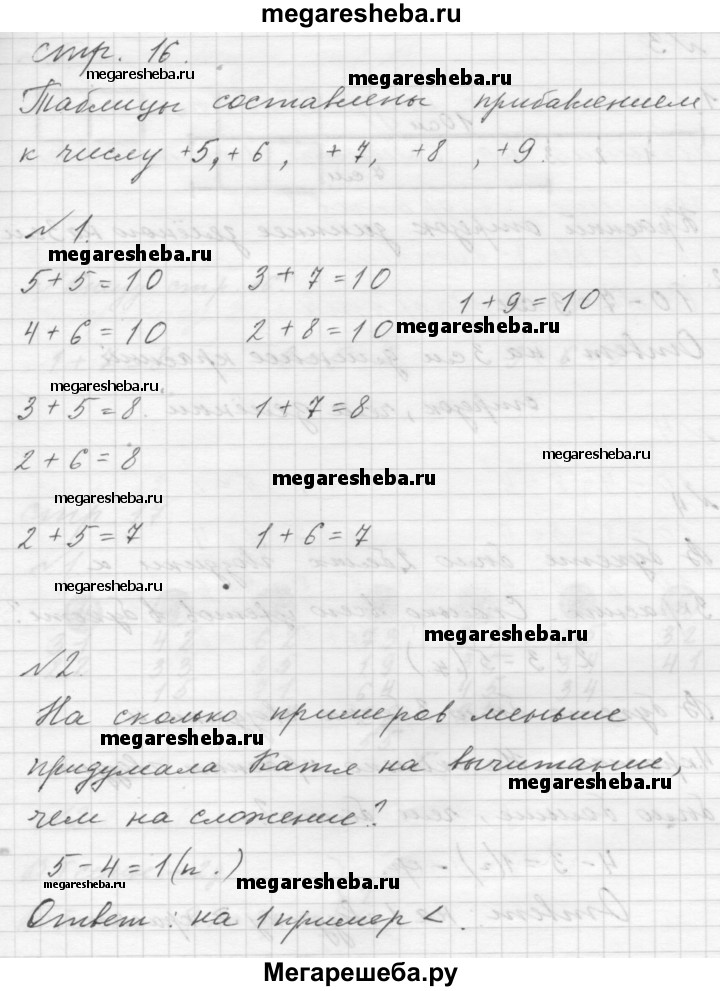 megaresheba.ru
стр. 16.
megaresheba.ru megaresheba.ru
Таблицы составлены прибавлением
к числу +5, +6, +7, +8, +9.
megaresheba.ru
№1.
megaresheba.ru
5+5=10 3+7=10
1+9=10
4+6=10 2+8=10 megaresheba.ru
megaresheba.ru
3+5=8. 1+7=8
2+6=8 megaresheba.ru
megaresheba.ru
megaresheba.ru
2+5=7 1+6=7
megaresheba.ru
megaresheba.ru
№2.
На сколько примеров меньше
megaresheba.ru
придумала Катя на вычитание,
megaresheba.ru
чем на сложение?
5-4=1(п.)
megaresheba.ru megaresheba.ru
Ответ: на 1 пример <.
Мегарешеба.ру